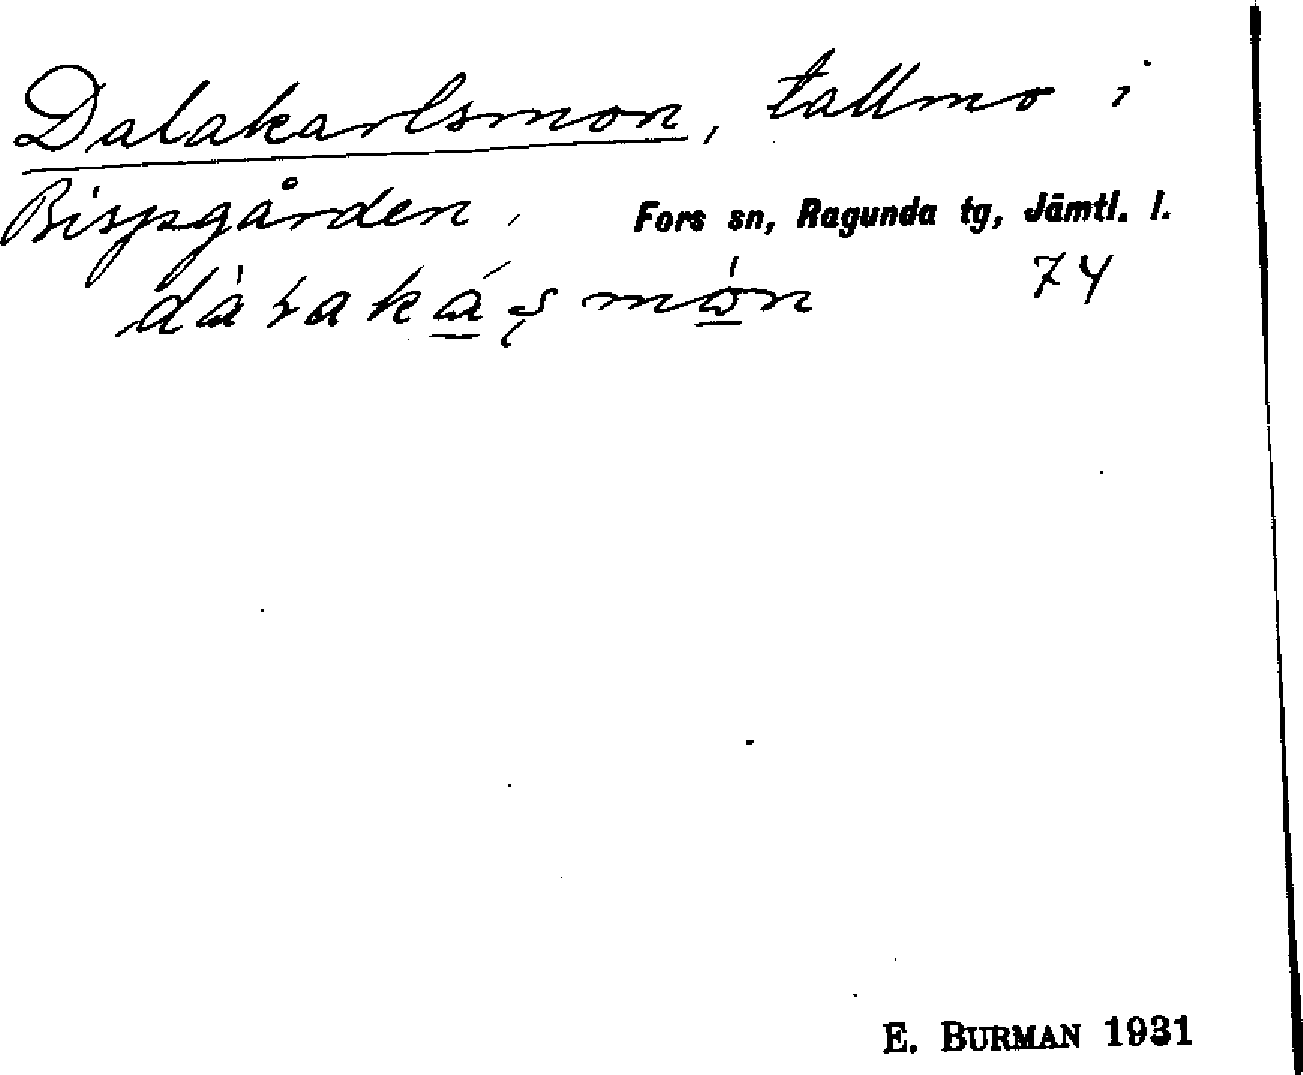 Dalakarlsmon, tallmo i
Bispgården, Fors sn, Ragunda tg, Jämtl. l.
74
E. BURMAN 1931